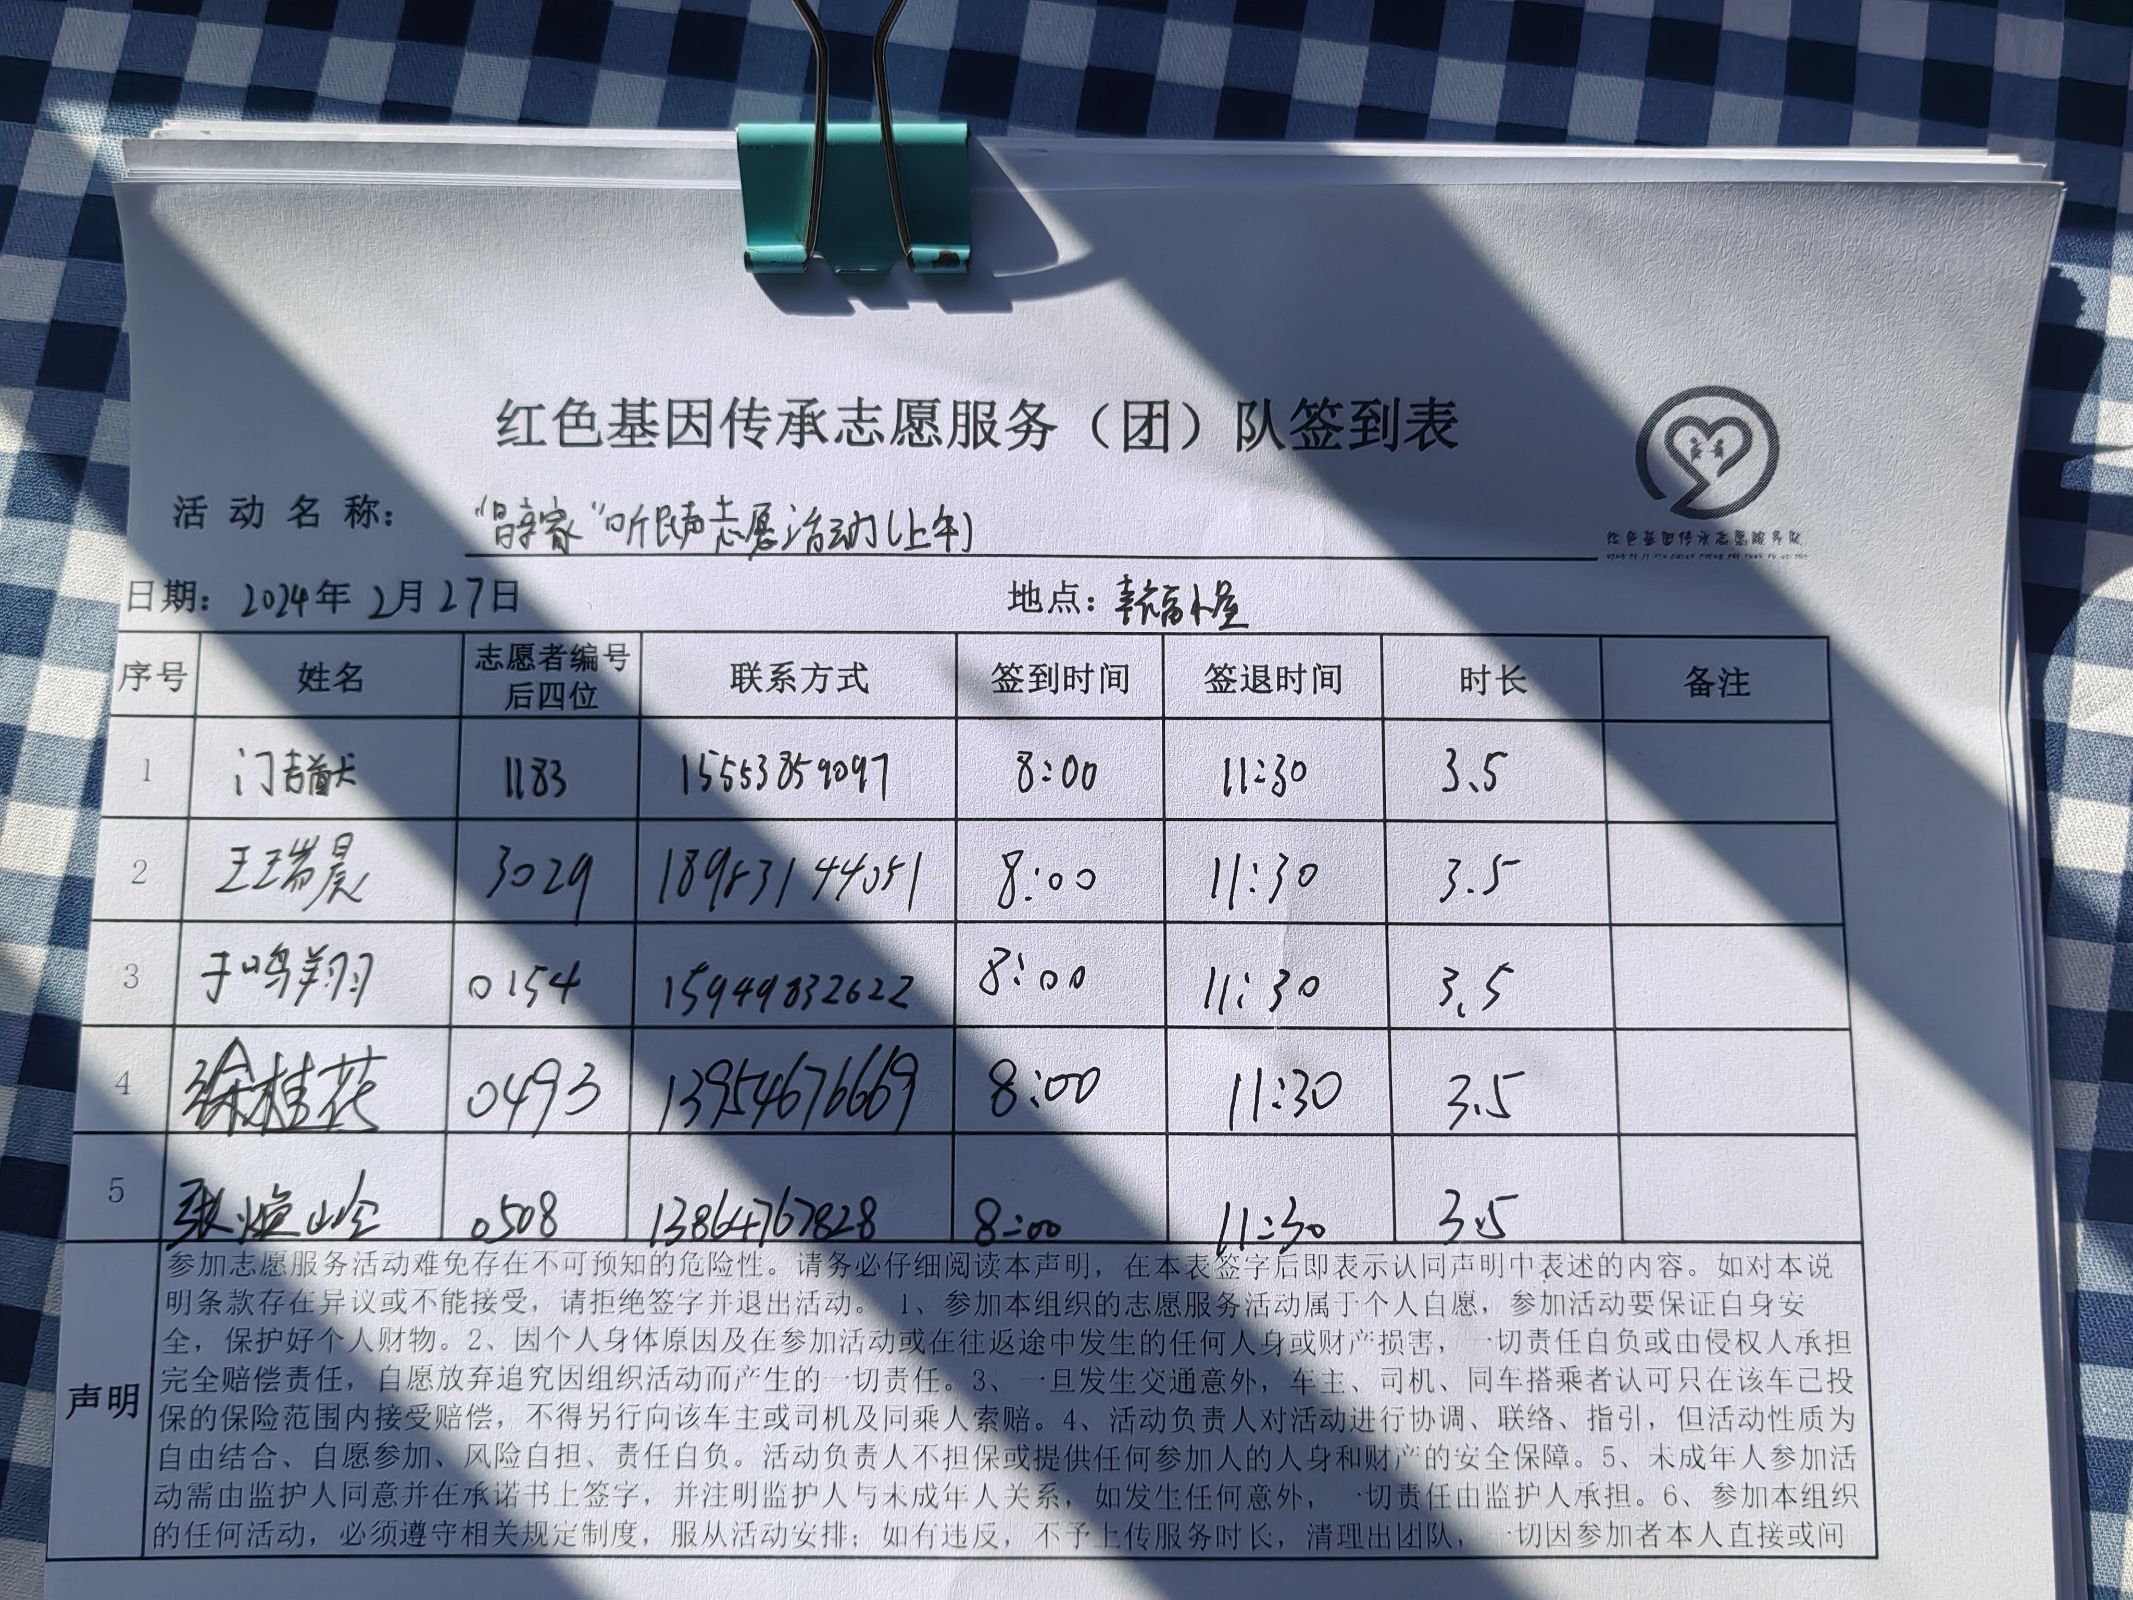 红色基因传承志愿服务（团）队签到表
红色基因传承志愿服务队
活动名称： "昌亲家"听民声志愿活动(上午)
日期：2024年2月27日 地点：幸福小屋
序号 姓名 志愿者编号后四位 联系方式 签到时间 签退时间 时长 备注
1 门 1183 15553859097 8:00 11:30 3.5
2 王瑞晨 3029 18983144051 8:00 11:30 3.5
3 于鸣翔 0154 15949832622 8:00 11:30 3.5
4 徐桂花 0493 13954676669 8:00 11:30 3.5
5 张 0508 13864767828 8:00 11:30 3.5
声明
参加志愿服务活动难免存在不可预知的危险性。请务必仔细阅读本声明，在本表签字后即表示认同声明中表述的内容。如对本说
明条款存在异议或不能接受，请拒绝签字并退出活动。 1、参加本组织的志愿服务活动属于个人自愿，参加活动要保证自身安
全，保护好个人财物。2、因个人身体原因及在参加活动或在往返途中发生的任何人身或财产损害，一切责任自负或由侵权人承担
完全赔偿责任，自愿放弃追究因组织活动而产生的一切责任。3、一旦发生交通意外，车主、司机、同车搭乘者认可只在该车已投
保的保险范围内接受赔偿，不得另行向该车主或司机及同乘人索赔。4、活动负责人对活动进行协调、联络、指引，但活动性质为
自由结合、自愿参加、风险自担、责任自负。活动负责人不担保或提供任何参加人的人身和财产的安全保障。5、未成年人参加活
动需由监护人同意并在承诺书上签字，并注明监护人与未成年人关系，如发生任何意外，一切责任由监护人承担。6、参加本组织
的任何活动，必须遵守相关规定制度，服从活动安排；如有违反，不予上传服务时长，清理出团队，一切因参加者本人直接或间